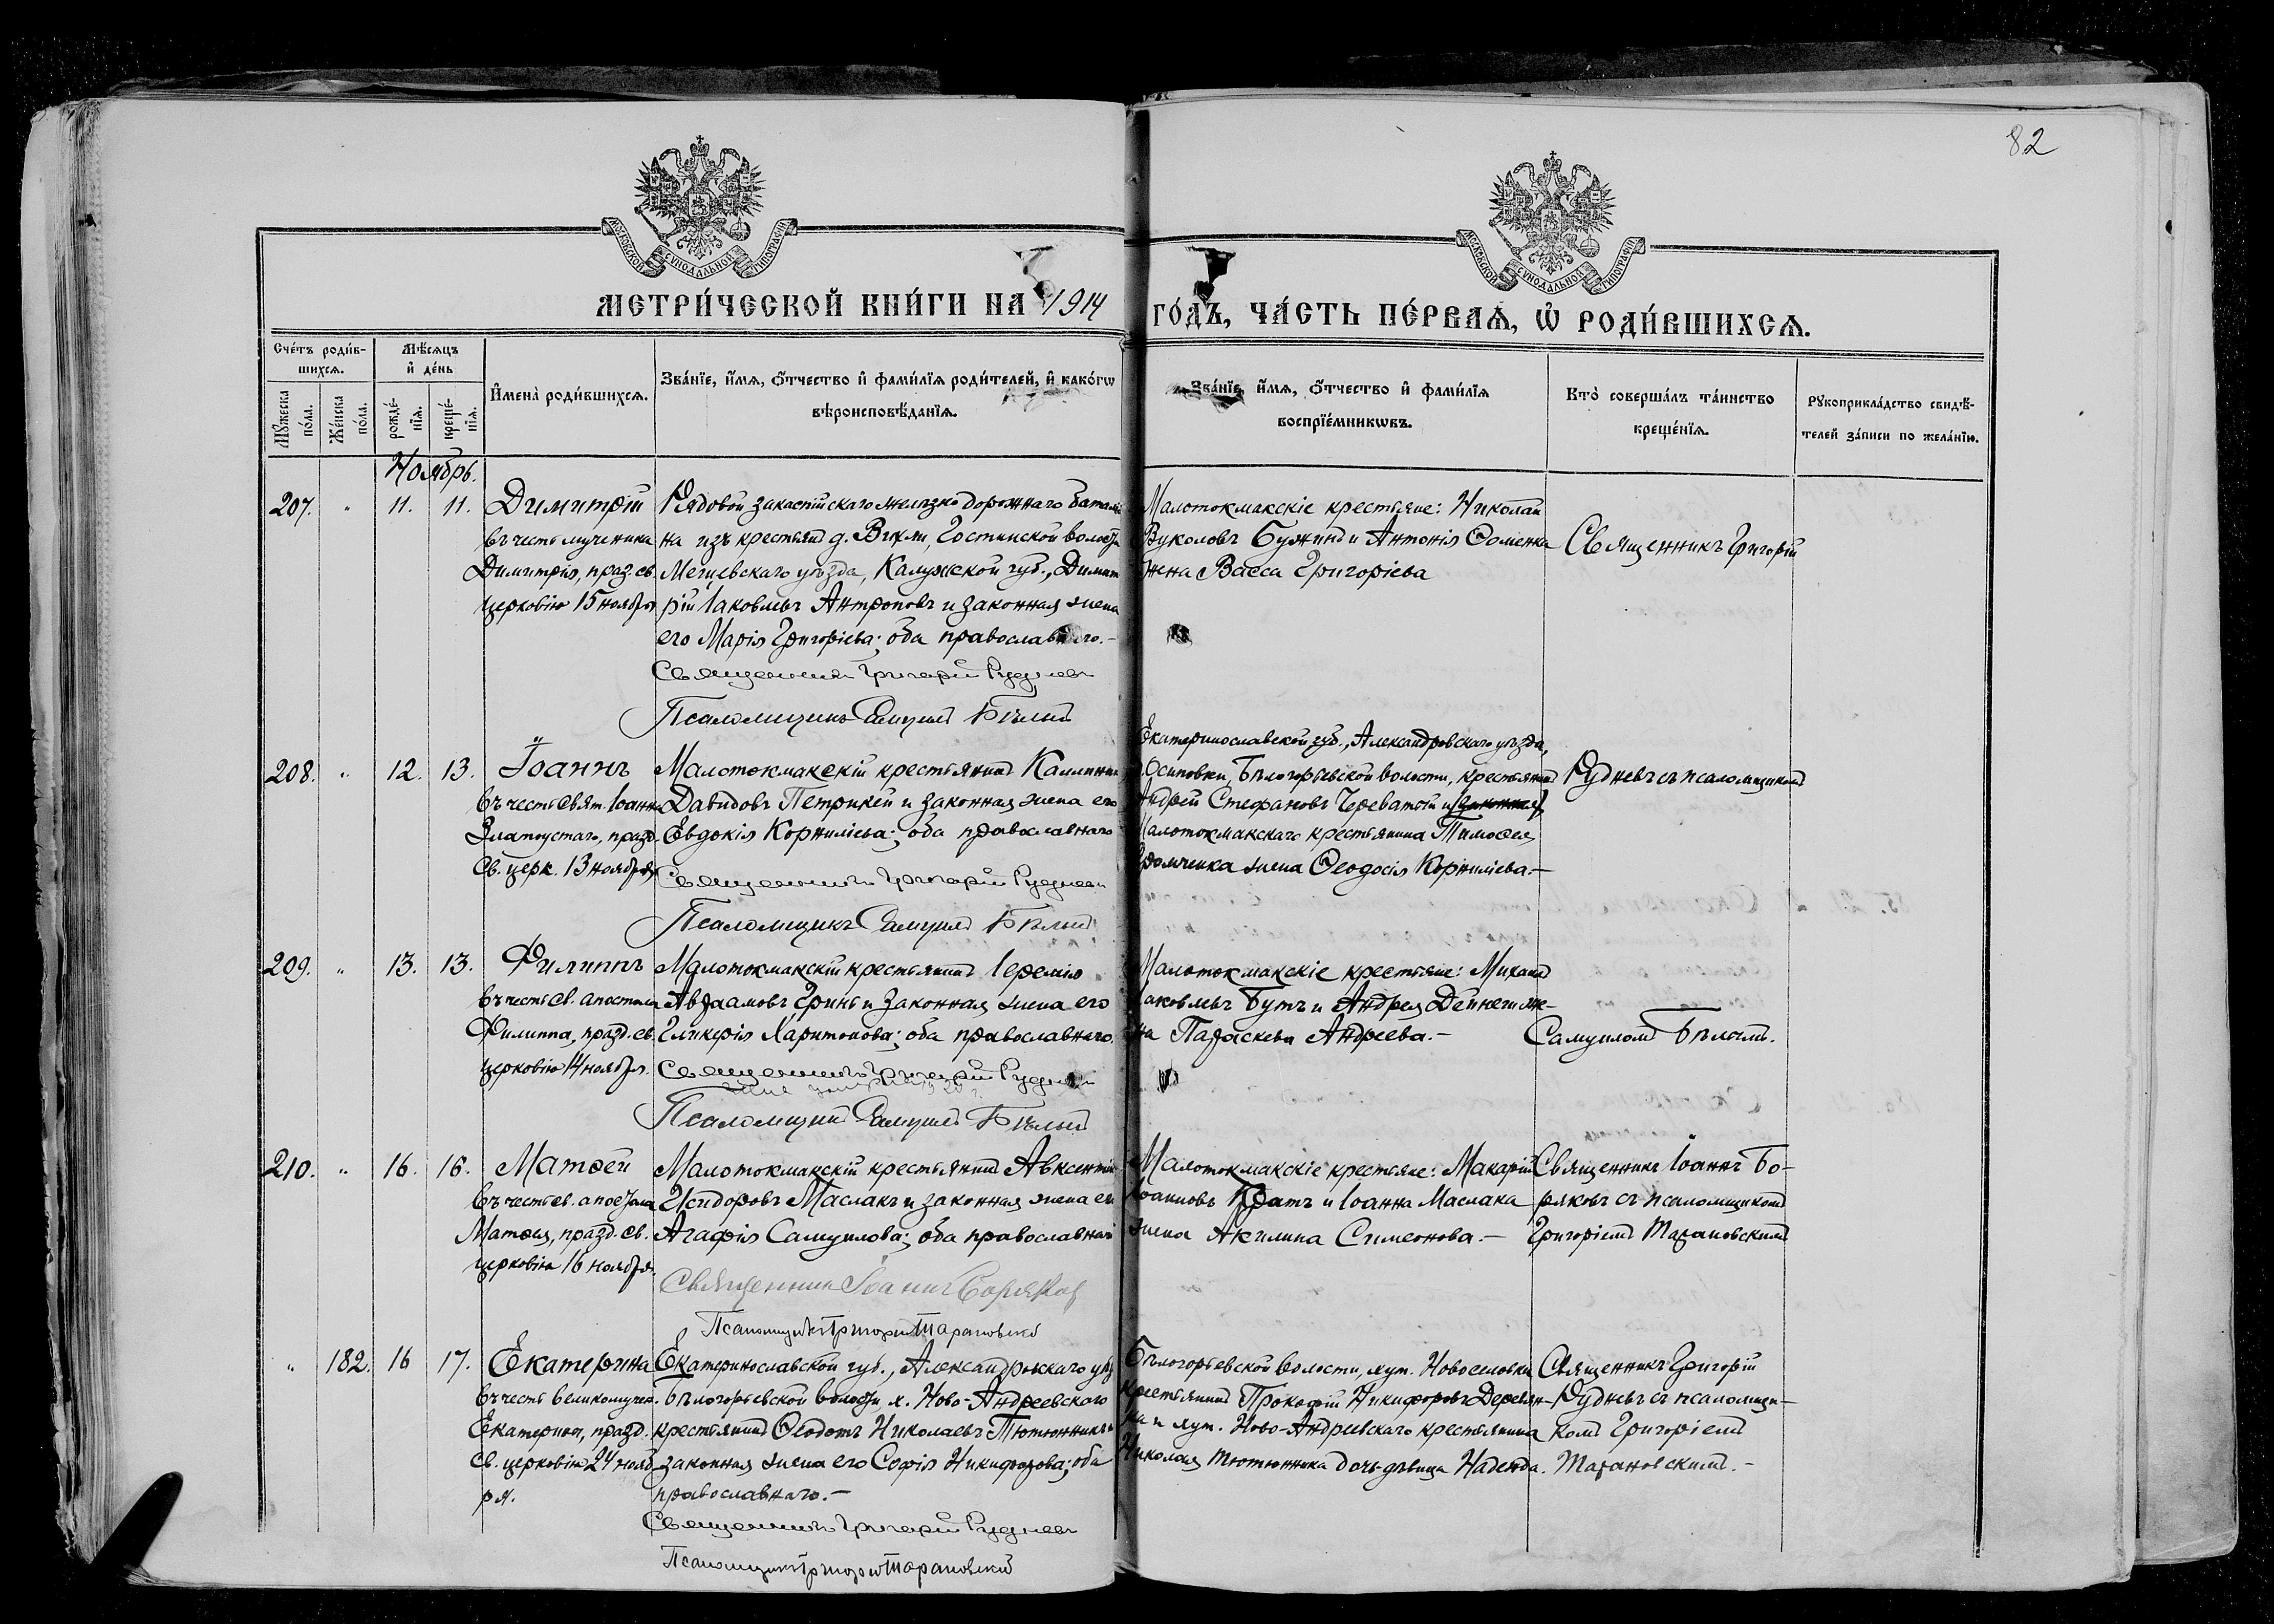 82
МОСКОВСКОЙ СУНОДАЛЬНОЙ ТИПОГРАФІИ
МОСКОВСКОЙ СУНОДАЛЬНОЙ ТИПОГРАФІИ
МЕТРИ́ЧЕСКОЙ КНИ́ГИ НА 1914 ГО́ДЪ, ЧА́СТЬ ПЕ́РВАѦ, Ѡ҆ РОДИ́ВШИХСѦ.
Сче́тъ роди́в-
шихсѧ.
Мѣ́сѧцъ
и҆ де́нь
Мꙋ́жеска по́ла.
Же́нска по́ла.
рожде́-
нїѧ.
креще́-
нїѧ.
И҆мена̀ роди́вшихсѧ.
Зва́нїе, и҆́мѧ, ѻ҆́тчество и҆ фами́лїѧ роди́телей, и҆ како́гѡ
вѣроисповѣ́данїѧ.
Зва́нїе, и҆́мѧ, ѻ҆́тчество и҆ фами́лїѧ
воспрїе́мникѡвъ.
Кто̀ соверша́лъ та́инство
креще́нїѧ.
Рꙋкоприкла́дство свидѣ́-
телей за́писи по жела́нїю.
Ноябрь.
207. " 11. 11. Димитрій
въ честь мученика
Димитрія, праз. св.
церковію 15 ноября
Рядовой закаспійскаго желѣзно дорожнаго баталіо
на изъ крестьянъ д. Вяхли, Гостинской волости
Мещевскаго уѣзда, Калужской губ., Димит
рій Іаковлевъ Антроповъ и законная жена
его Марія Григоріева; оба православнаго.-
Священникъ Григорій Рудневъ
Псаломщикъ Самуилъ Бѣлый
Малотокмакскіе крестьяне: Николай
Вуколовъ Бужинъ и Антонія Ѳоменка
жена Васса Григоріева
Священникъ Григорій
208. " 12. 13. Іоаннъ
въ честь Свят. Іоанна
Златоустаго, празд.
Св. церк. 13 ноября
Малотокмакскій крестьянинъ Каллиникъ
Давидовъ Петрикей и законная жена его
Евдокія Корниліева; оба православнаго
Священникъ Григорій Рудневъ
Псаломщикъ Самуилъ Бѣлый
Екатеринославской губ., Александровскаго уѣзда,
Осиповки, Бѣлогорьевской волости, крестьянинъ
Андрей Стефановъ Череватый и законная
Малотокмакскаго крестьянина Тимоѳея
Еромченка жена Ѳеодосія Корниліева.-
Рудневъ съ псаломщикомъ
209. " 13. 13. Филиппъ
въ честь св. апостола
Филиппа, празд. св.
церковію 14 ноября.
Малотокмакскій крестьянинъ Іеремія
Авраамовъ Гринь и законная жена его
Гликерія Харитонова; оба православнаго.
Священникъ Григорій Рудневъ
Псаломщикъ Самуилъ Бѣлый
Малотокмакскіе крестьяне: Михаилъ
Іаковлевъ Бутъ и Андрея Дейнеги же-
на Параскева Андреева.-
Самуиломъ Бѣлымъ.
210. " 16. 16. Матѳей
въ честь св. апостола
Матѳея, празд. св.
церковію 16 ноября.
Малотокмакскій крестьянинъ Авксентій
Исидоровъ Маслакъ и законная жена его
Агафія Самуилова; оба православнаго
Священникъ Іоаннъ Боряковъ
Псаломщикъ Григорій Тарановскій
Малотокмакскіе крестьяне: Макарій
Іоанновъ Кратъ и Іоанна Маслака
жена Акилина Симеонова.-
Священникъ Іоаннъ Бо-
ряковъ съ псаломщикомъ
Григоріемъ Тарановскимъ
" 182. 16 17. Екатерина
въ честь великомучен.
Екатерины, празд.
св. церковію 24 нояб-
ря.
Екатеринославской губ., Александровскаго уѣз
Бѣлогорьевской волости, х. Ново-Андреевскаго
крестьянинъ Ѳеодотъ Николаевъ Тютюнникъ и
законная жена его Софія Никифорова; оба
православнаго.-
Священникъ Григорій Рудневъ
Псаломщикъ Григорій Тарановскій
Бѣлогорьевской волости, хут. Новоселовки
крестьянинъ Прокофій Никифоровъ Деревян-
ка и хут. Ново-Андреевскаго крестьянина
Николая Тютюнника дочь дѣвица Надежда.
Священникъ Григорій
Рудневъ съ псаломщи-
комъ Григоріемъ
Тарановскимъ.-